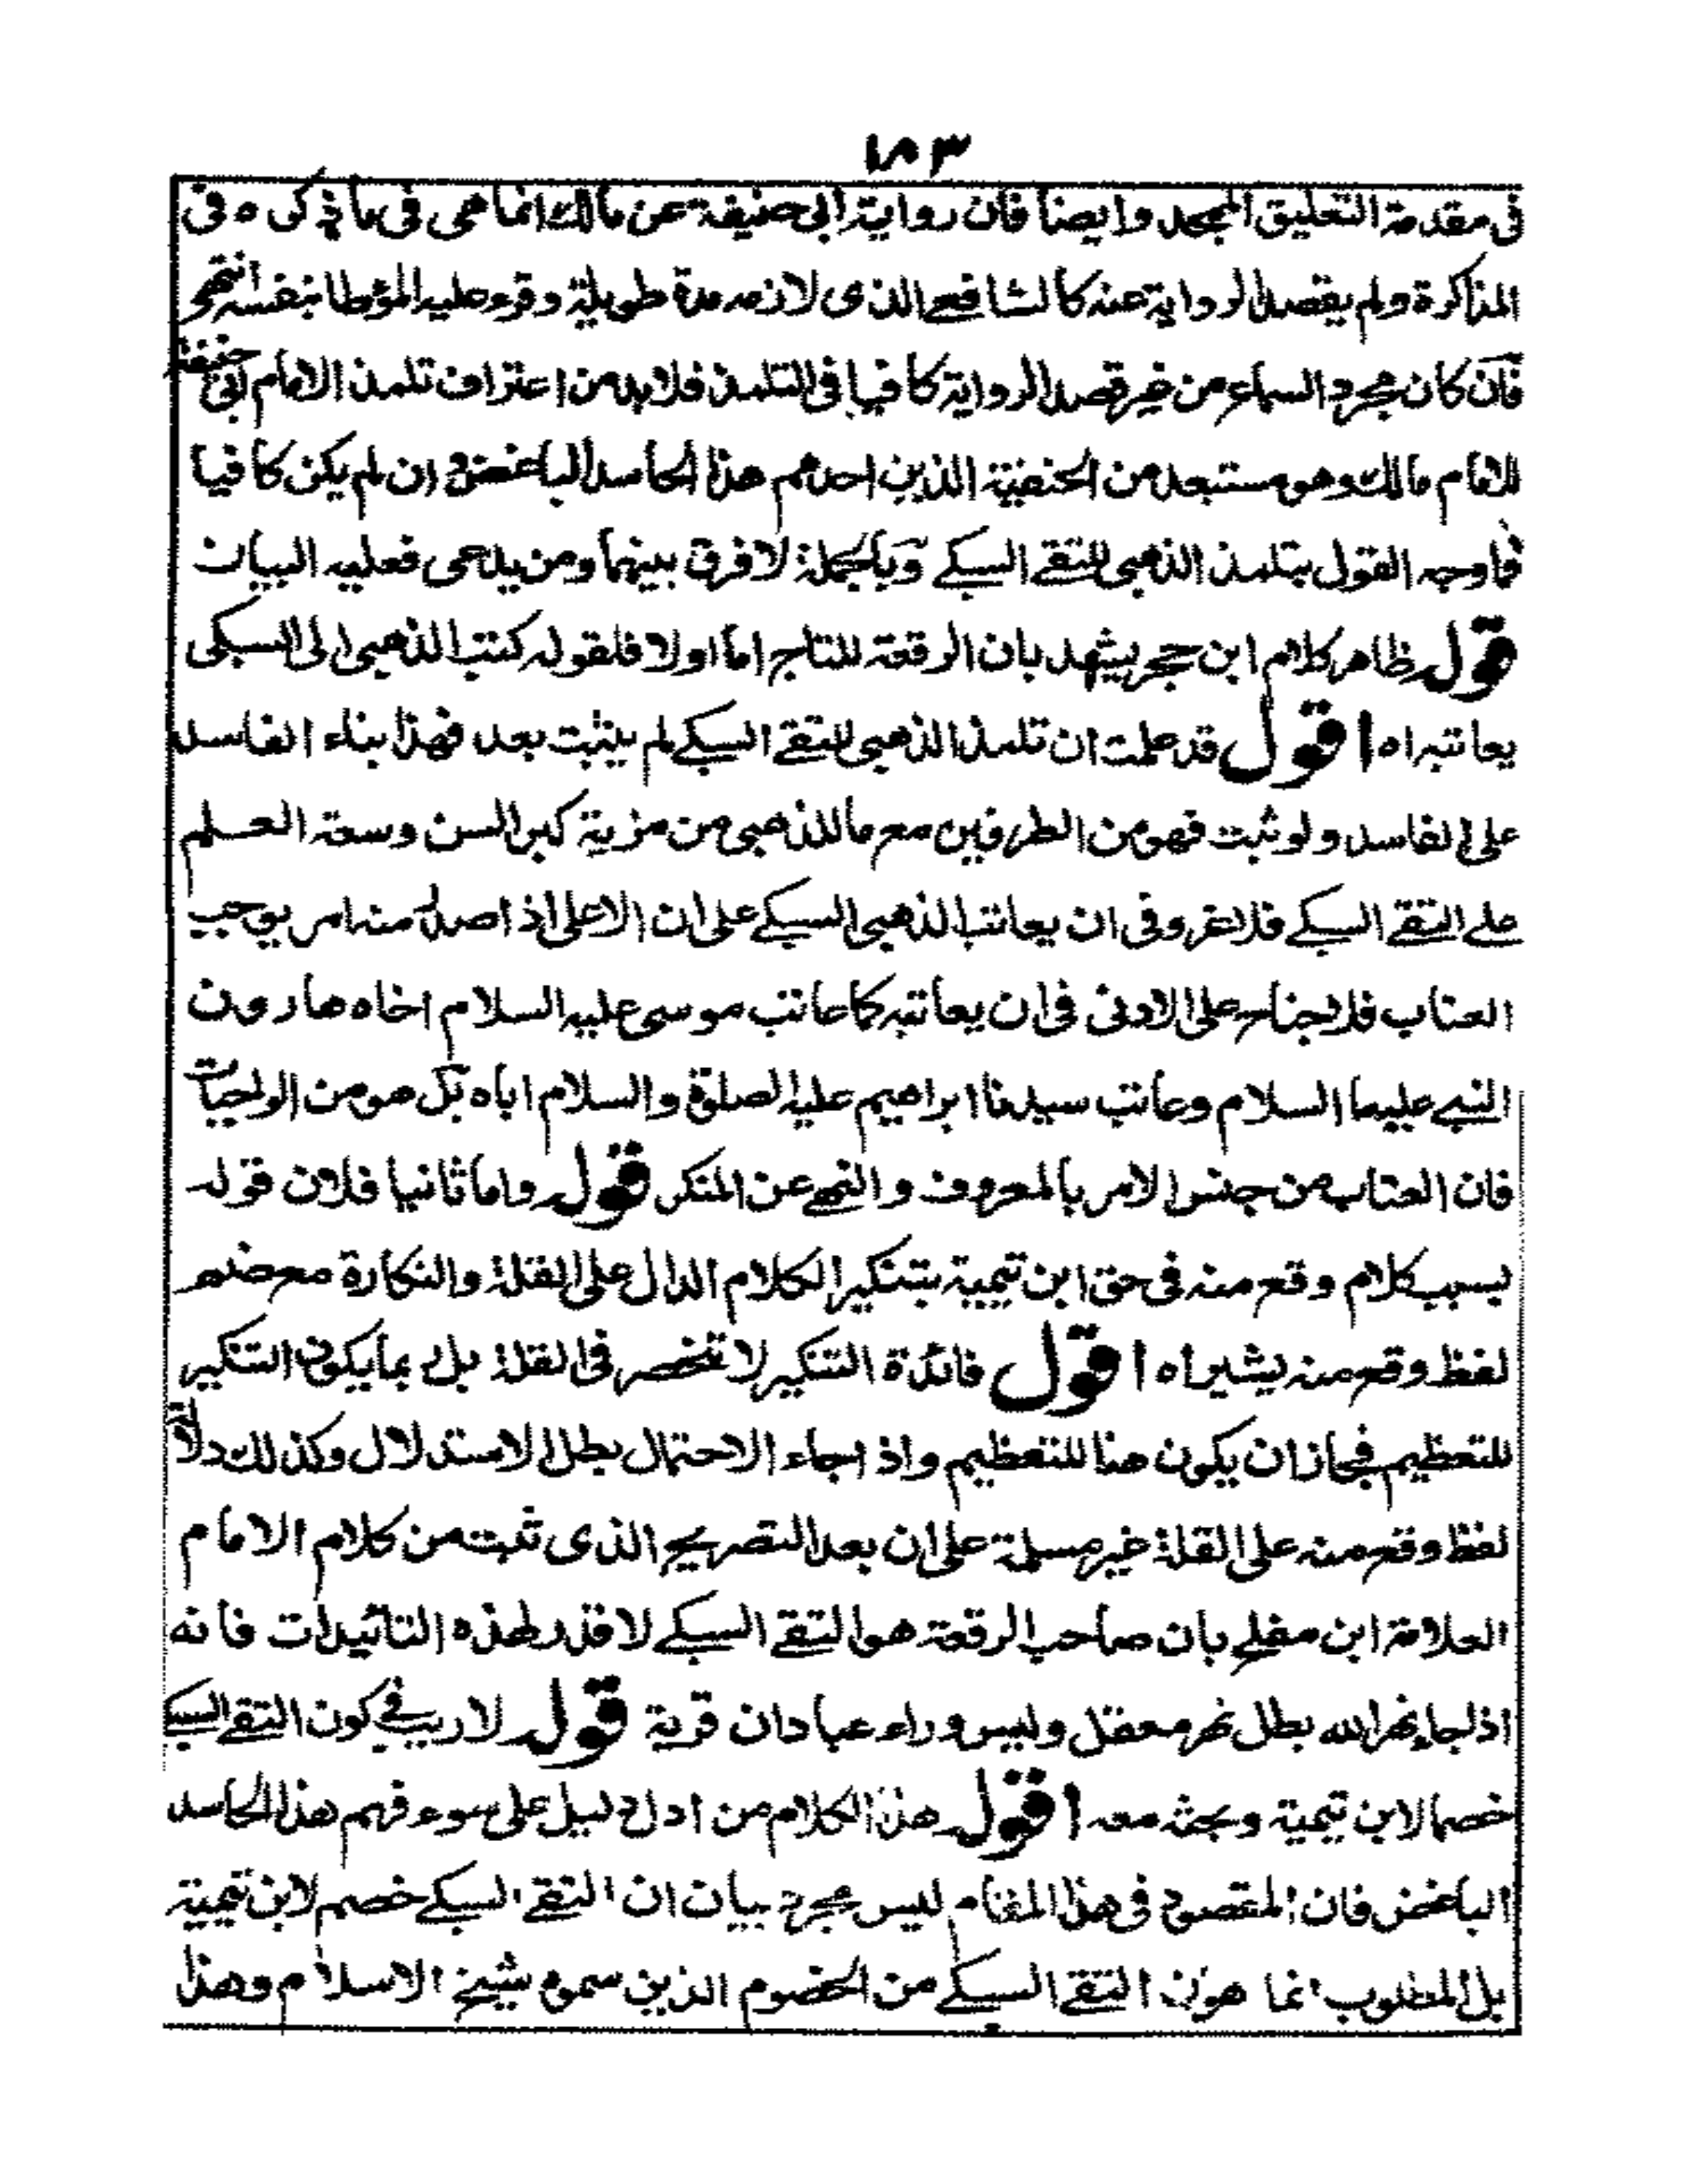 ١٨٣
فى مقدمة التعليق الممجد وايضا فان رواية ابى حنيفة عن مالك انما هى فى ما ذكره فى
المذاكرة ولم يقصد الرواية عنه كالشافعى الذى لازمه مدة طويلة وقرء عليه المؤطا بنفسه انتهى
فان كان مجرد السماع من غير قصد الرواية كافيا فى التلمذ فلابد من اعتراف تلمذ الامام ابى حنيفة
للامام مالك وهو مستبعد من الحنفية الذين احدهم هذا الحاسد الباغض وان لم يكن كافيا
فما وجه القول بتلمذ الذهبى للتقى السبكى وبالجملة لا فرق بينهما ومن يدعى فعليه البيان
قوله ظاهر كلام ابن حجر يشهد بان الرقعة للتاج اما اولا فلقوله كتب الذهبى الى السبكى
يعاتبه اه اقول قد علمت ان تلمذ الذهبى للتقى السبكى لم يثبت بعد فهذا بناء الفاسد
على الفاسد ولو ثبت فهو من الطرفين مع ما للذهبى من مزية كبر السن وسعة العلم
على التقى السبكى فلا غرو فى ان يعاتب الذهبى السبكى على ان الاعلى اذ اصدر منه امر يوجب
العتاب فلا جناح على الادنى فى ان يعاتبه كما عاتب موسى عليه السلام اخاه هارون
النبى عليهما السلام وعاتب سيدنا ابراهيم عليه الصلوة والسلام اباه بل هو من الواجبات
فان العتاب من جنس الامر بالمعروف والنهى عن المنكر قوله واما ثانيا فلان قوله
بسبب كلام وقع منه فى حق ابن تيمية بتنكير الكلام الدال على القلة والنكارة مع ضم
لفظ وقع منه يشير اه اقول فائدة التنكير لا تنحصر فى القلة بل ربما يكون التنكير
للتعظيم فيجاز ان يكون هنا للتعظيم واذ اجاء الاحتمال بطل الاستدلال وكذلك دلالة
لفظ وقع منه على القلة غير مسلمة على ان بعد التصريح الذى ثبت من كلام الامام
العلامة ابن مفلح بان صاحب الرقعة هو التقى السبكى لا قدر لهذه التائيدات فانه
اذ اجاء نهر الله بطل نهر معقل وليس وراء عبادان قرية قوله لا ريب فى كون التقى السبكى
خصما لابن تيمية وبحثه معه اقول هذا الكلام من ادل دليل على سوء فهم هذا الحاسد
الباغض فان المقصود فى هذا المقام ليس مجرد بيان ان التقى السبكى خصم لابن تيمية
بل المطلوب انما هو ان التقى السبكى من الخصوم الذين سموه بشيخ الاسلام وهذا